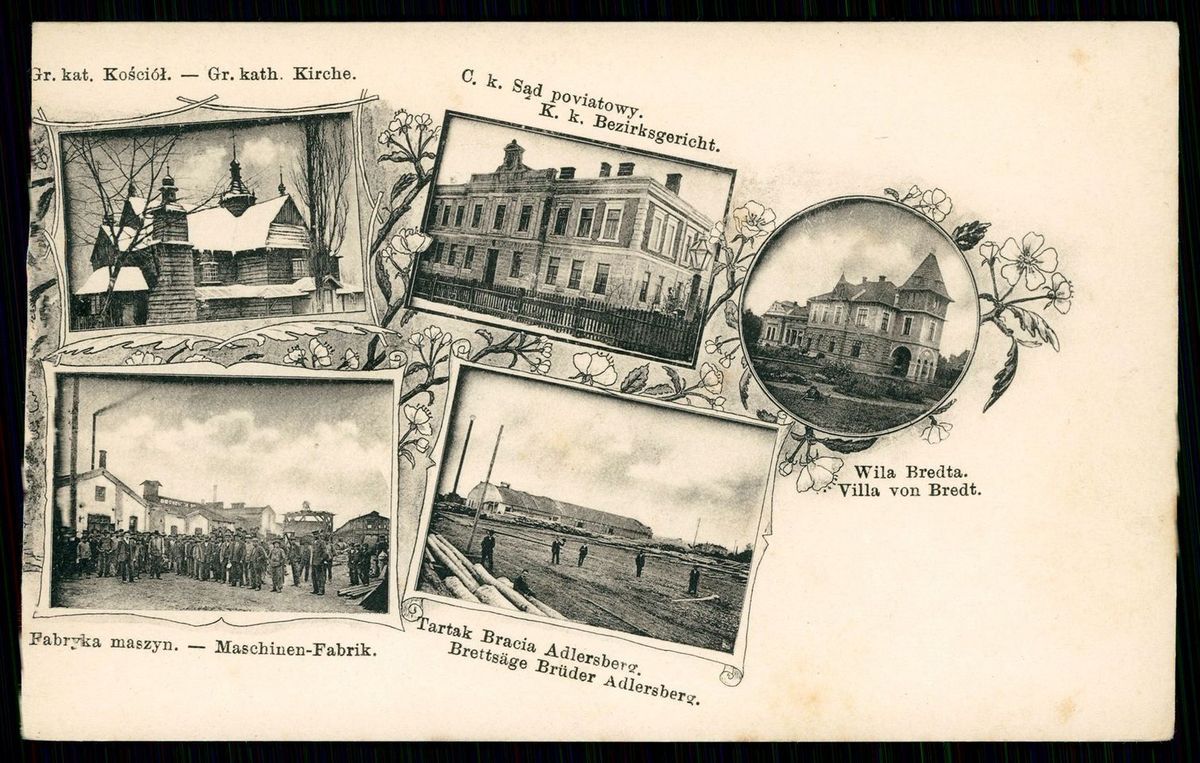 Gr. kat. Kościół. — Gr. kath. Kirche.
C. k. Sąd poviatowy.
K. k. Bezirksgericht.
Wila Bredta.
Villa von Bredt.
Fabryka maszyn. — Maschinen-Fabrik.
Tartak Bracia Adlersberg.
Brettsäge Brüder Adlersberg.